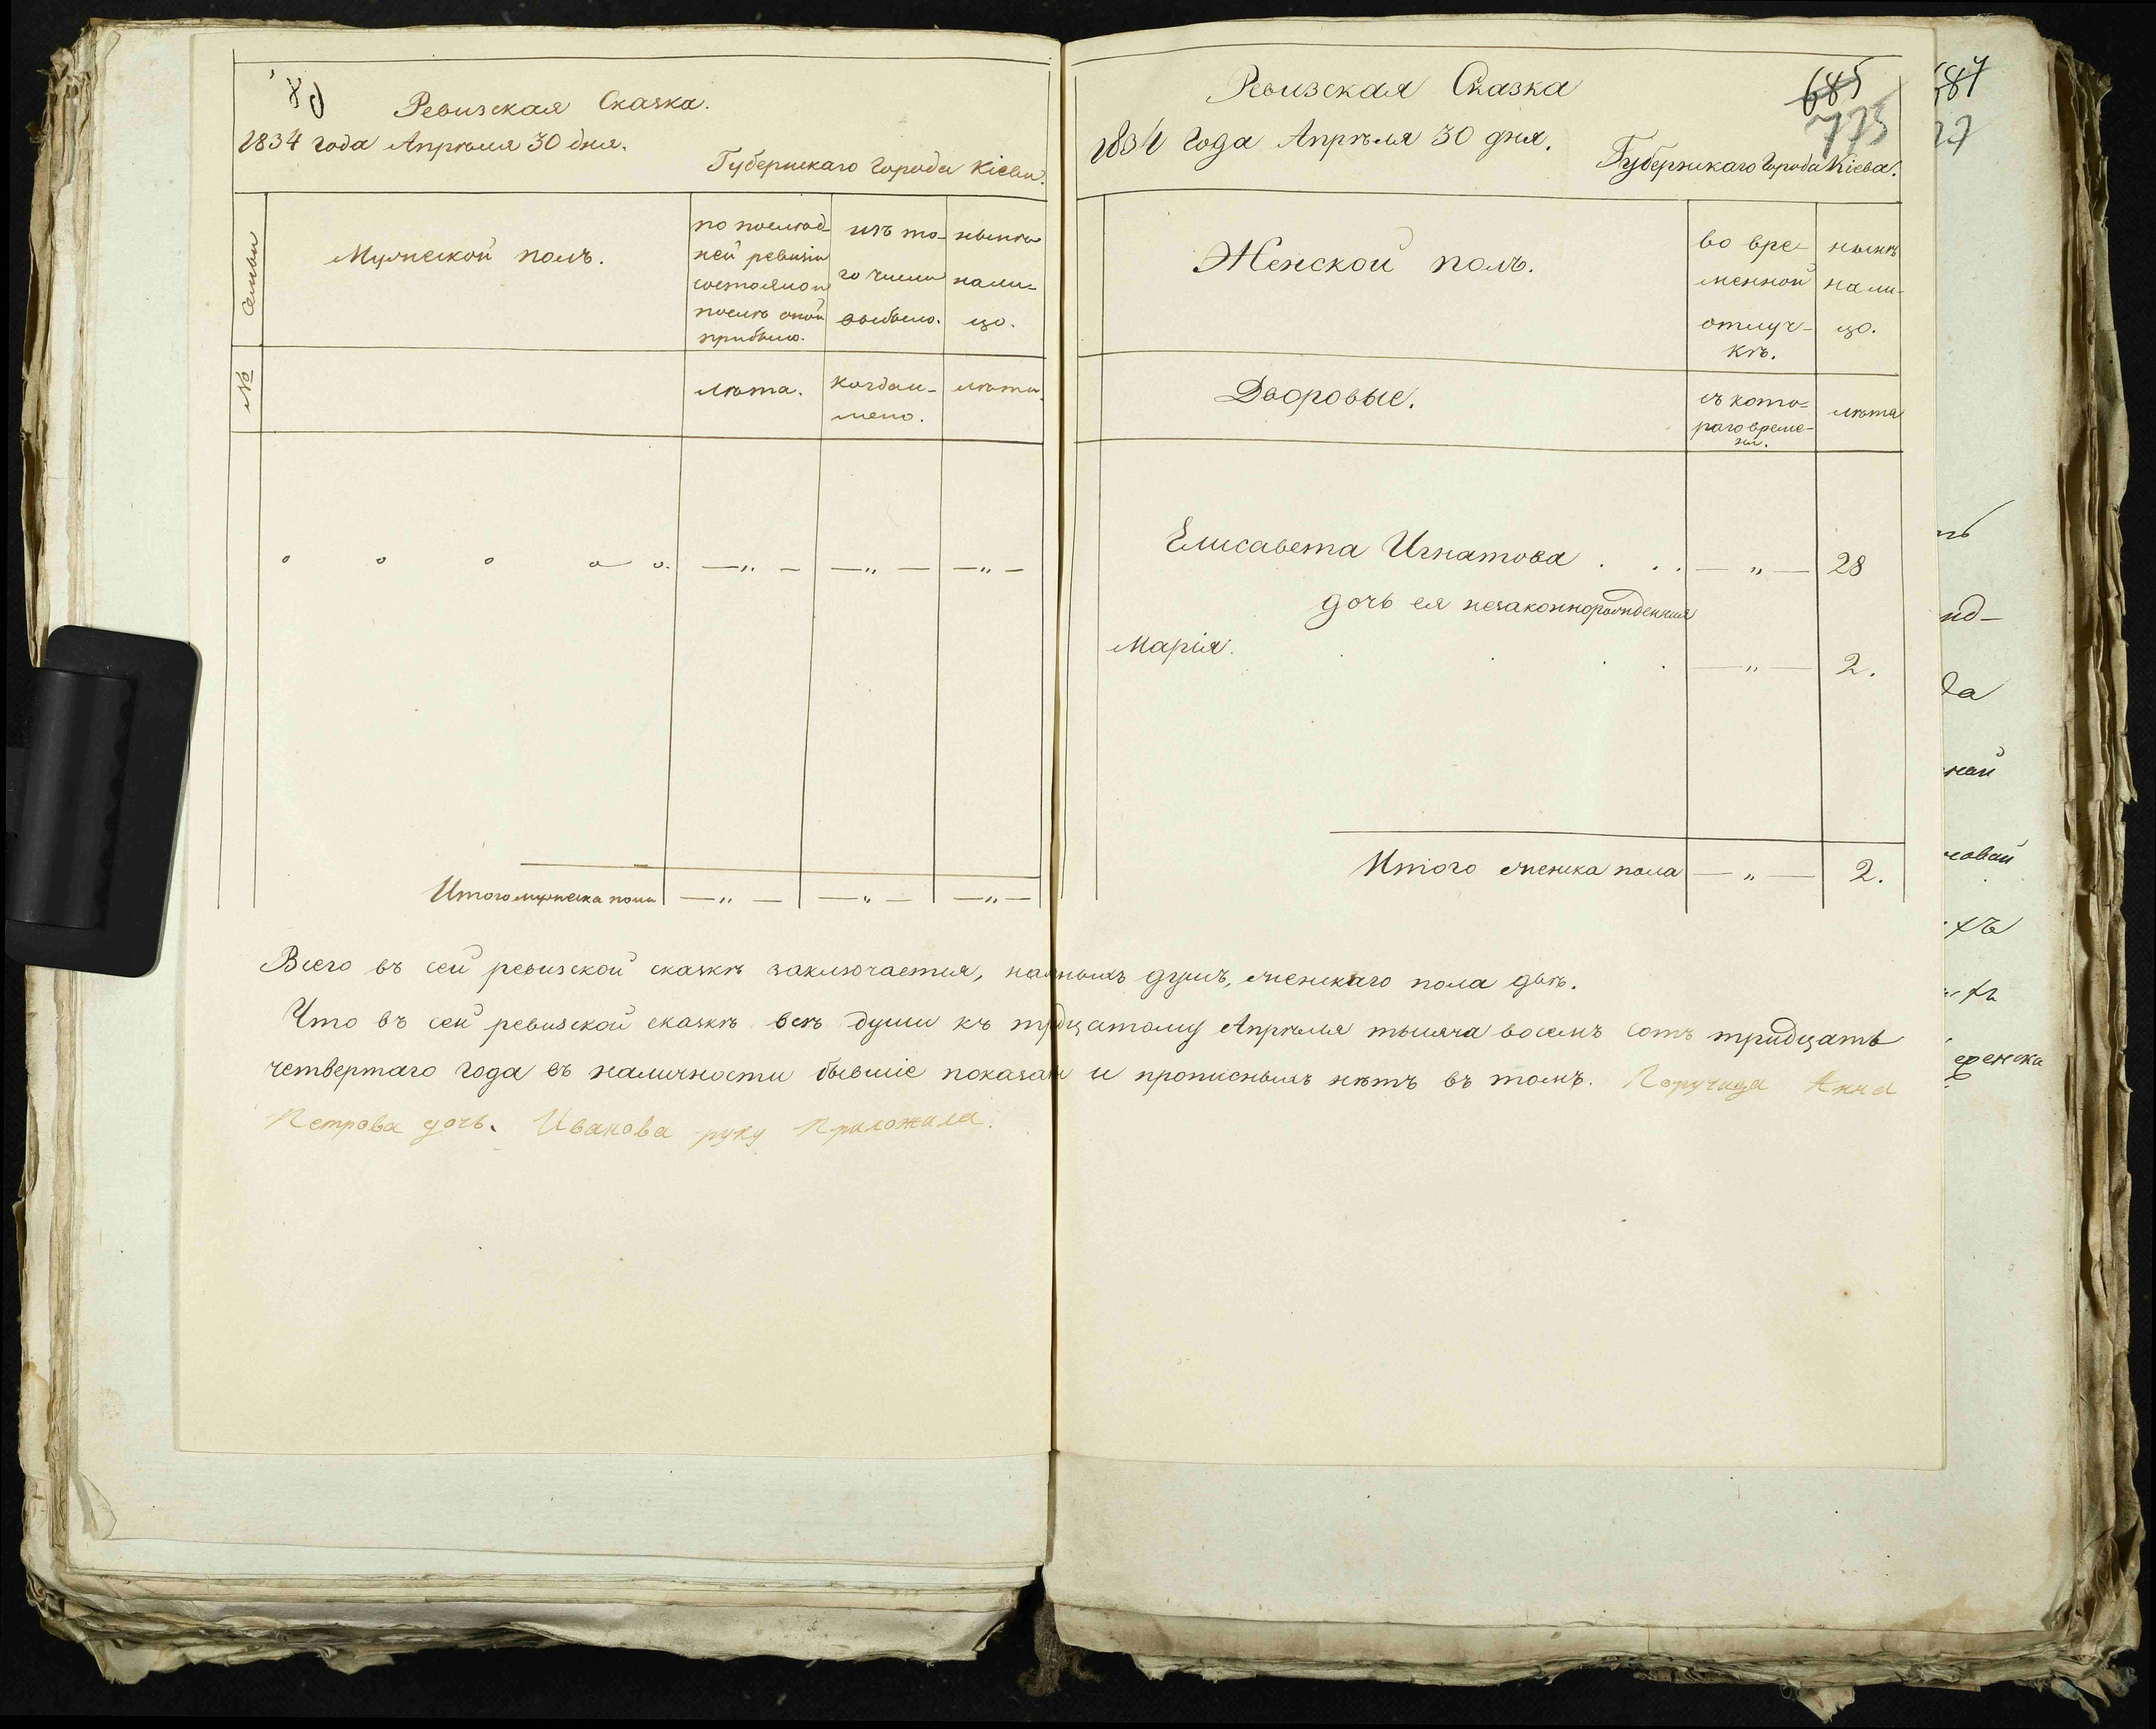 Ревизская Сказка.
1834 года Апрѣля 30 дня.
Губернскаго Города Кіева.
№ Семьи
Мужеской полъ.
по послѣд-
ней ревизіи
состояло и
послѣ оной
прибыло.
изъ то-
го числа
выбыло.
нынѣ
нали-
цо.
лѣта.
когда и-
мено.
лѣта.
Итого мужеска пола — „ — — „ — — „ —
Ревизская Сказка
685
773
1834 Года Апрѣля 30 дня.
Губернскаго Города Кіева.
Женской полъ.
во вре-
менной
отлуч-
кѣ.
нынѣ
нали-
цо.
Дворовые.
съ кото-
раго време-
ни.
лѣта
Елисавета Игнатова . . . — „ — 28
дочь ея незаконнорожденная
Марія. . . . — „ — 2.
Итого женска пола — „ — 2.
Всего въ сей ревизской сказкѣ заключается, наличныхъ душъ, женскаго пола двѣ.
Что въ сей ревизской сказкѣ всѣ души къ тридцатому Апрѣля тысяча восемь сотъ тридцать
четвертаго года въ наличности бывшіе показаны и прописныхъ нѣтъ въ томъ. Поручица Анна
Петрова дочь. Иванова руку Приложила.
687
27